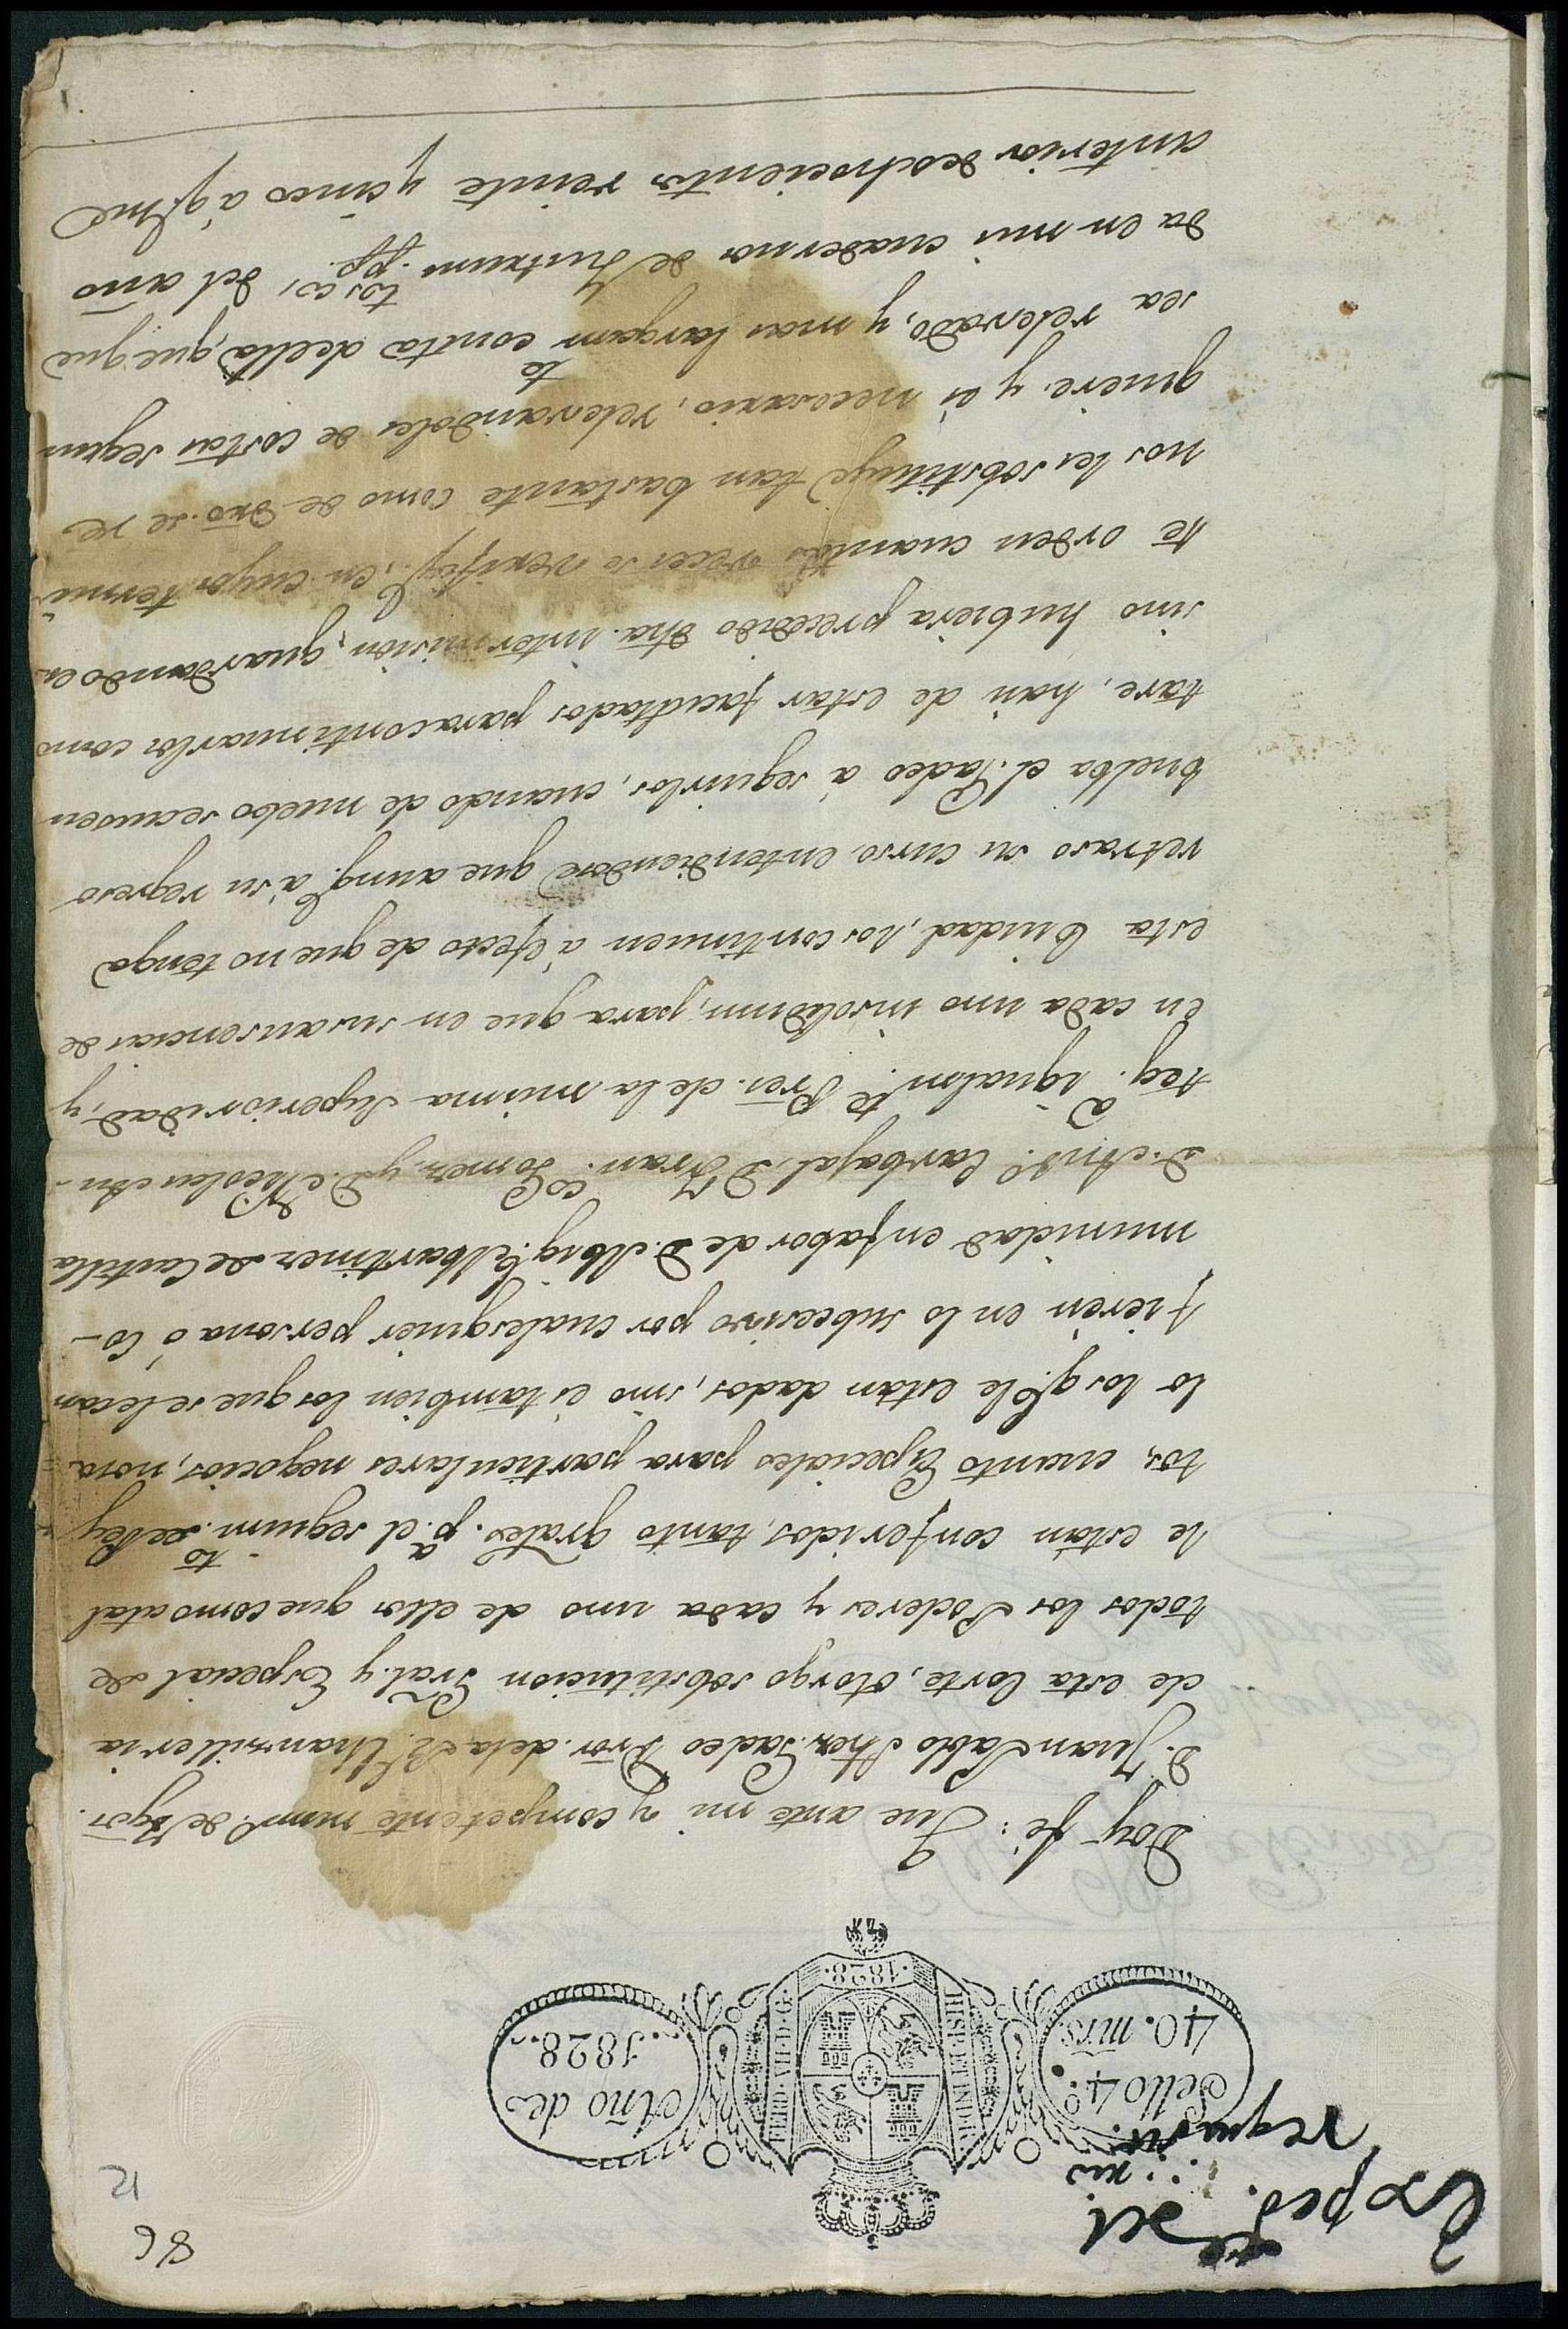 86
21
Exped.te del
requerim.
Sello 4.º
40. mrs.
HISP. ET IND. R.
FERD. VII. D. G.
·1828·
Año de
.1828.
Doy fé: Que ante mi y competente num.º de tgõs.
D. Juan Pablo Tadeo Prõr. de la R.l Chansilleria
de esta Corte, otorgo sobstitucion Gral. y Especial de
todos los Poderes y cada uno de ellos que como atal
le están conferidos, tanto grãles. p.a el seguim.to de Pley
tos, cuanto Especiales para particulares negocios, no so
lo los q.e le estan dados, sino es tambien los que se le con
fieren en lo subcesivo por cualesquier persona ó co-
munidad en fabor de D. Mig.l Martinez de Castilla
D. Ant.º Carbajal, D. Fran.co Gomez, y D. Nicolas An-
teq.a igualm.te Prẽs. de la misma Superioridad, y
en cada uno insolidum, para que en sus ausencias de
esta Ciudad, los continuen á efecto de que no tenga
retraso su curso, entendiendose que aunq.e a su regreso
buelba el Tadeo á seguirlos, cuando de nuebo se ausen
tare, han de estar facultados para continuarlos como
sino hubiera precedido dhã. intermision, guardando es
te orden cuantas veces se verifiq.e, en cuyos termi
nos les sobstituye tan bastante como de drõ. se re
quiere, y es necesario, relevandoles de costas segun
es relevado, y mas largam.te consta de ella, que que
da en mis cuadernos de Instrum.tos pp.cos del año
anterior de ochocientos veinte y cinco á q.e me